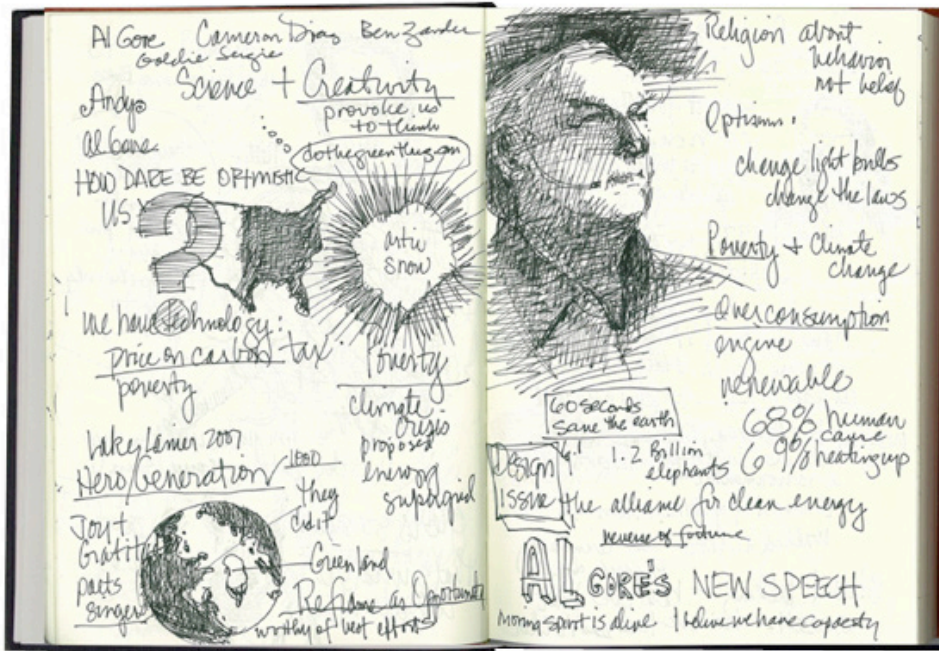 Al Gore Cameron Diaz Ben Zander
Goldie Sergie
Science + Creativity
provoke us
to think
Andy
dothegreenthing.com
HOW DARE BE OPTIMISTIC
US
?
artic
snow
we have technology:
price on carbon tax
poverty
Poverty
climate
crisis
proposed
energy
supergrid
2007
Hero/Generation
1000
they
did it
Joy +
Gratit
poets
singer
Greenland
Reframe as Opportunity
worthy of best efforts
Religion about
behavior
not belief
Optisim.
change light bulbs
change the laws
Poverty + Climate
change
Overconsumption
engine
renewable
60 seconds
save the earth
68% human
cause
69% heating up
1.2 Billion
elephants
DESIGN
ISSUE
the alliance for clean energy
reverse of fortune
AL GORE'S NEW SPEECH
moring spirit is alive I believe we have capacity